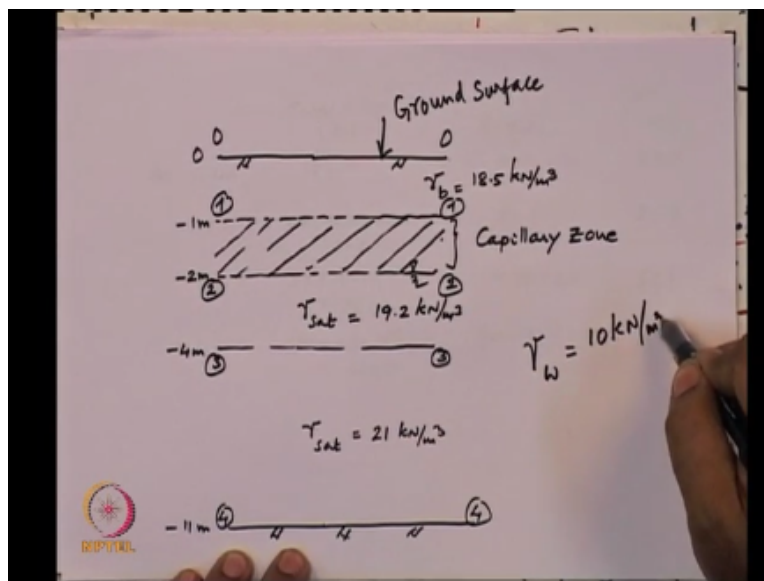 Ground Surface
0 0
0
γb = 18.5 kN/m³
① ①
-1m
Capillary Zone
-2m
② ②
γsat = 19.2 kN/m³
-4m
③ ③
γw = 10 kN/m³
γsat = 21 kN/m³
-11m ④ ④
NPTEL